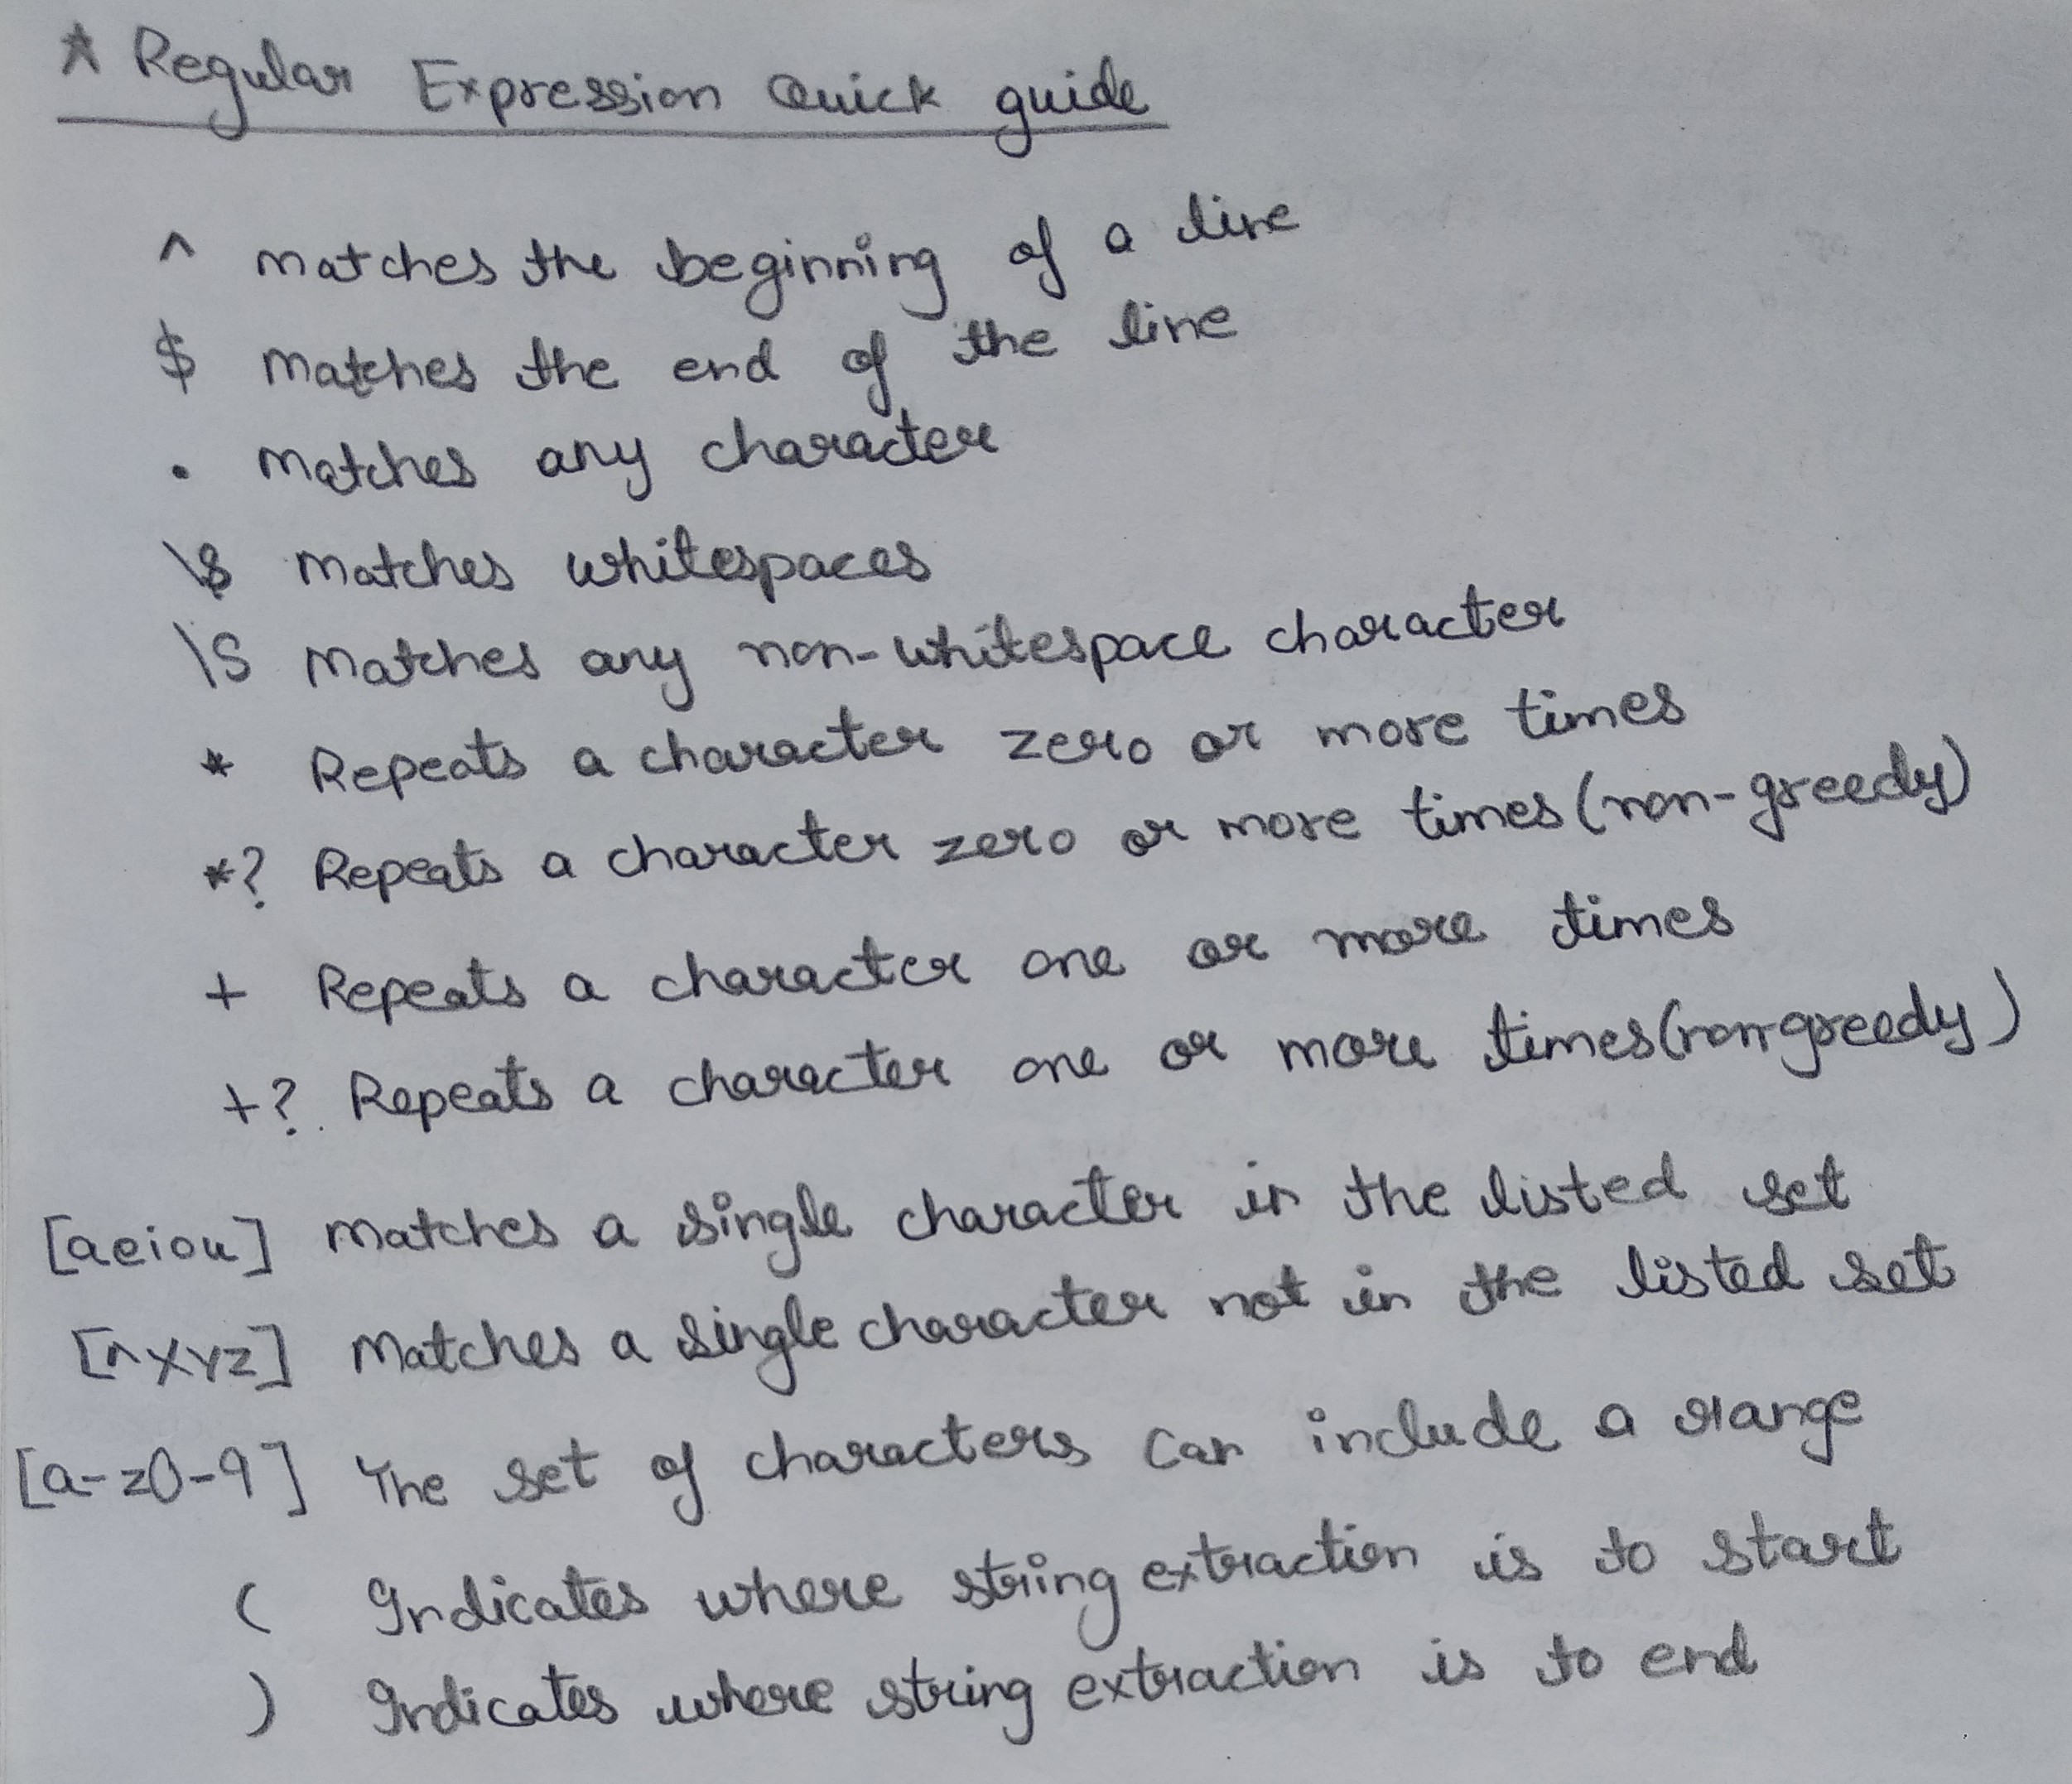 * Regular Expression Quick guide
^ matches the beginning of a line
$ matches the end of the line
. matches any character
\s matches whitespaces
\S matches any non-whitespace character
* Repeats a character zero or more times
*? Repeats a character zero or more times (non-greedy)
+ Repeats a character one or more times
+? Repeats a character one or more times (non-greedy)
[aeiou] matches a single character in the listed set
[^XYZ] Matches a single character not in the listed set
[a-z0-9] The set of characters can include a range
( Indicates where string extraction is to start
) Indicates where string extraction is to end